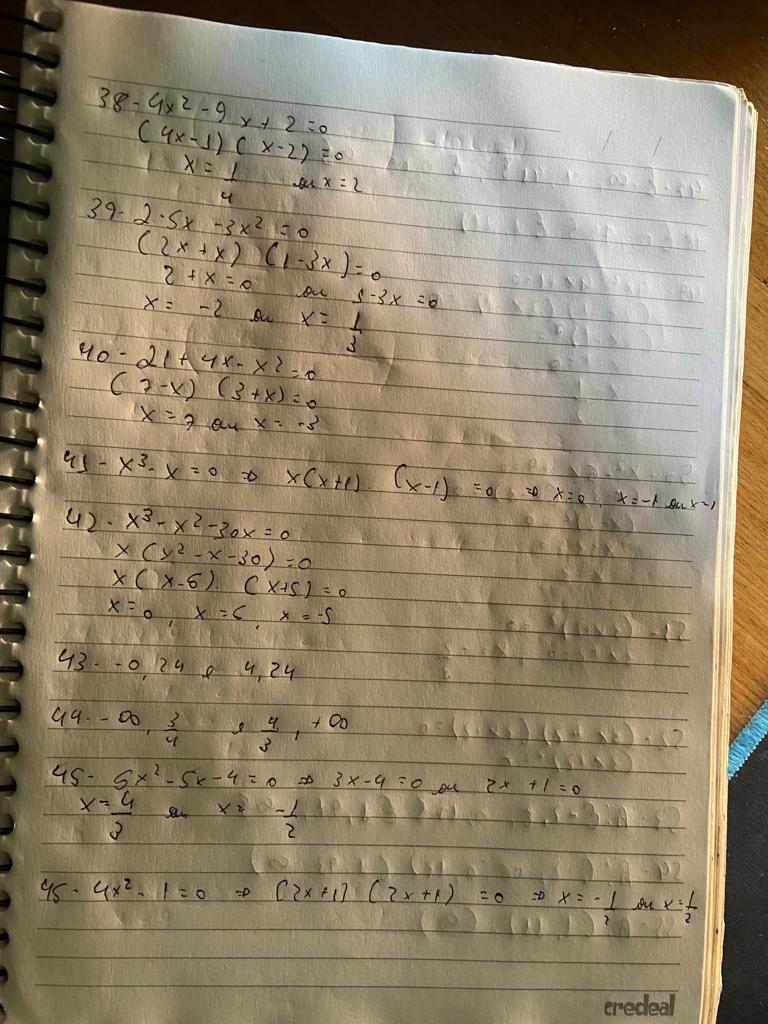 38- 4x² - 9x + 2 = 0
(4x-1) (x-2) = 0
x = 1/4 ou x = 2
39- 2-5x -3x² = 0
(2x + x) (1-3x) = 0
2 + x = 0 ou 1-3x = 0
x = -2 ou x = 1/3
40- 21 + 4x - x² = 0
(7-x) (3+x) = 0
x = 7 ou x = -3
41- x³ - x = 0 ⇒ x(x+1). (x-1) = 0 ⇒ x = 0, x = -1 ou x = 1
42- x³ - x² - 30x = 0
x (x² - x - 30) = 0
x (x-6). (x+5) = 0
x = 0, x = 6, x = -5
43- -0,24 e 4,24
44- -∞, 3/4 e 4/3, +∞
45- 6x² - 5x - 4 = 0 ⇒ 3x - 4 = 0 ou 2x + 1 = 0
x = 4/3 ou x = -1/2
45- 4x² - 1 = 0 ⇒ (2x+1) (2x+1) = 0 ⇒ x = -1/2 ou x = 1/2
credeal